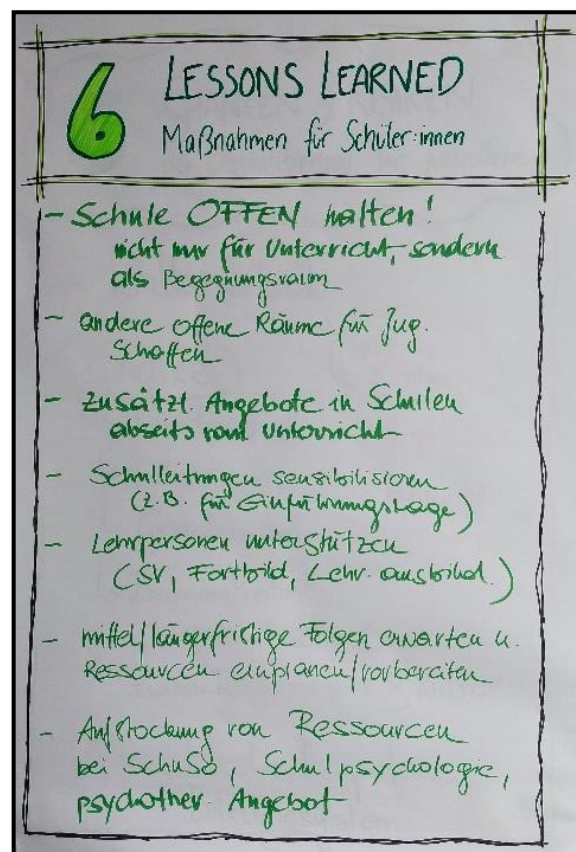 6
LESSONS LEARNED
Maßnahmen für Schüler:innen
- Schule OFFEN halten!
nicht nur für Unterricht, sondern
als Begegnungsraum
- andere offene Räume für Jug.
schaffen
- zusätzl. Angebote in Schulen
abseits vom Unterricht
- Schulleitungen sensibilisieren
(z.B. für Einführungstage)
- Lehrpersonen unterstützen
(SV, Fortbild, Lehr. ausbild.)
- mittel/längerfristige Folgen erwarten u.
Ressourcen einplanen/vorbereiten
- Aufstockung von Ressourcen
bei SchuSo, Schulpsychologie,
psychother. Angebot